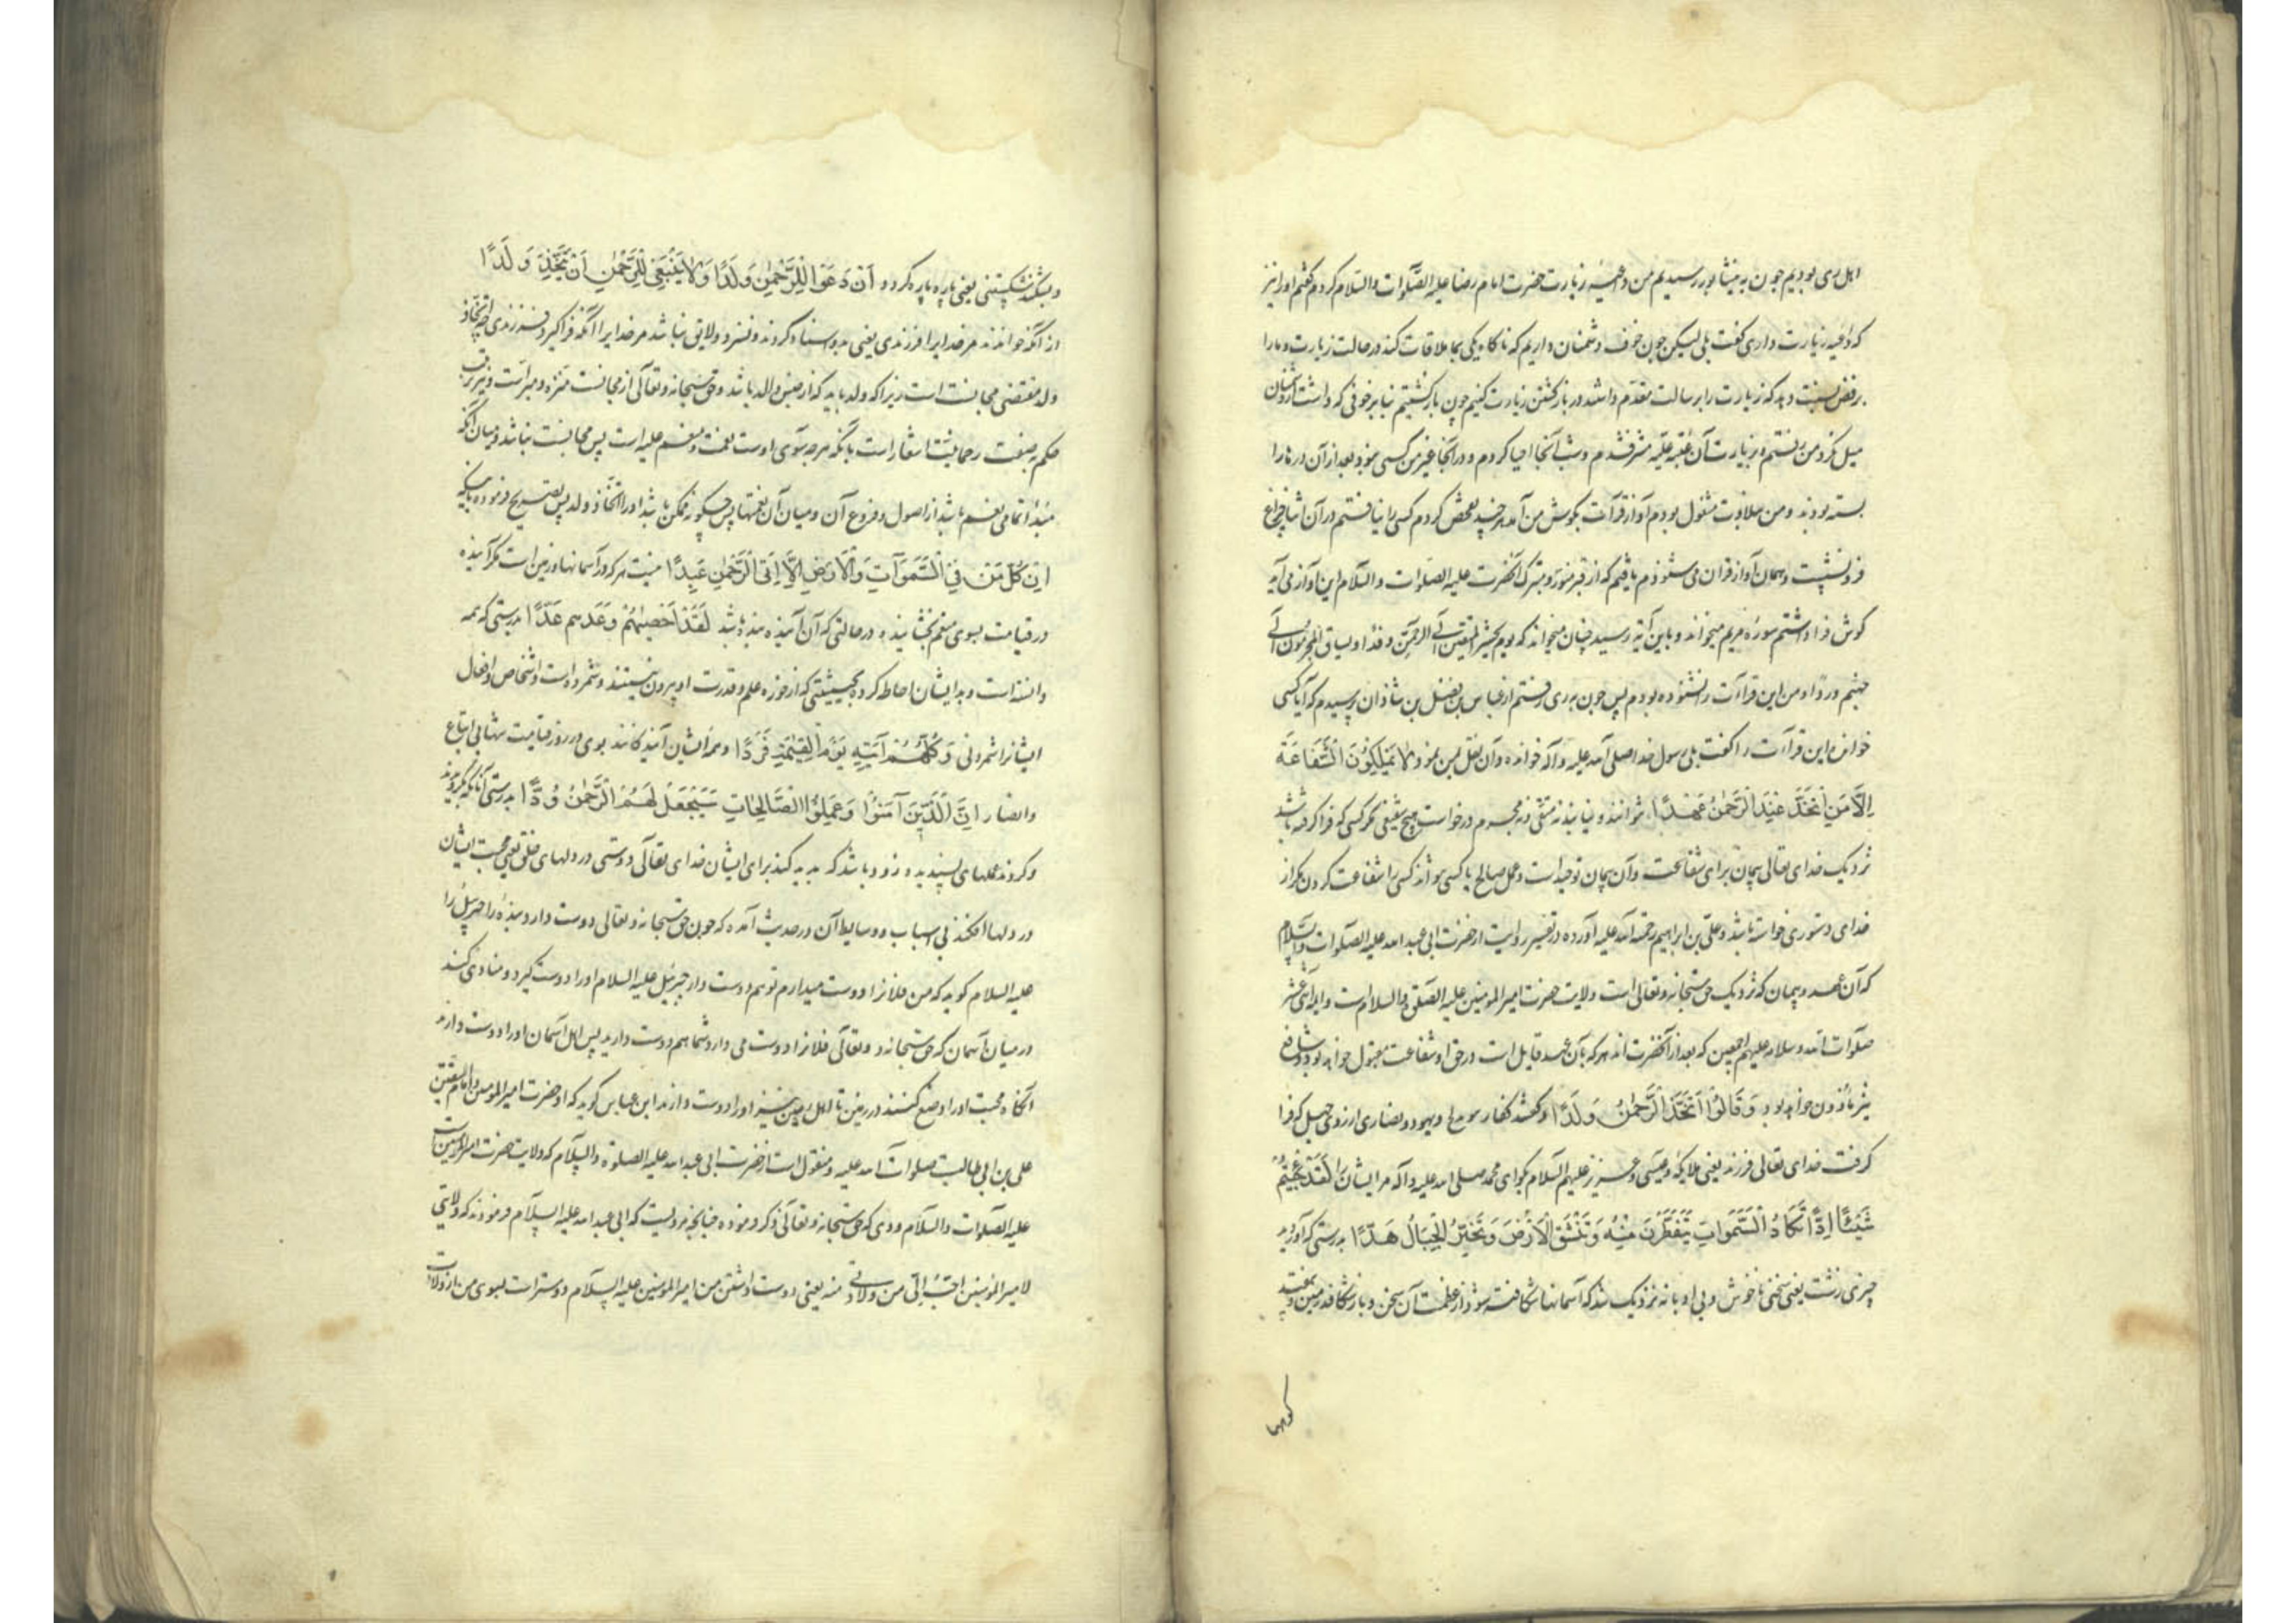 اهل ری بودیم چون به نیشابور رسیدیم من داعیهٔ زیارت حضرت امام رضا علیه الصلوات والسلام کردم گفتم او را نیز
که داعیه زیارت داری گفت بلی لیکن چون خوف دشمنان داریم که ناگاه یکی بما ملاقات کند در حالت زیارت و ما را
برفض نسبت دهد که زیارت را بر رسالت مقدم داشته در بازگشتن زیارت کنیم چون بازگشتیم بنا بر خوفی که داشت از دشمنان
میل نکرد من رفتم و بزیارت آن عتبه علیه مشرف شدم و شب آنجا احیا کردم و در آنجا غیر من کسی نبود بعد از آن درها را
بسته بودند و من بتلاوت مشغول بودم آواز قرآت بگوش من آمد هر چند تفحص کردم کسی را نیافتم در آن اثنا چراغ
فرو نشست و همان آواز قران می شنودم یافتم که از قبر منور و متبرک آنحضرت علیه الصلوات والسلام این آواز می آید
گوش فرا داشتم سورهٔ مریم میخواند و باین آیه رسید چنان میخواند که یوم یحشر المتقین الی الرحمن وفدا و یساق المجرمون الی
جهنم وردا و من این قراءت را نشنوده بودم پس چون به ری رفتم از عباس بن فضل بن شاذان پرسیدم که آیا کسی
خوانده این قراءت را گفت بلی رسول خدا صلی الله علیه وآله خوانده و آن نقل بمن نمود وَلَا يَمْلِكُونَ الشَّفَاعَةَ
اِلَّا مَنِ اتَّخَذَ عِنْدَ الرَّحْمٰنِ عَهْدًا نتوانند و نیابند نه متقی و نه مجرم درخواست هیچ شفیعی مگر کسی که فرا گرفته باشد
نزدیک خدای تعالی پیمان برای شفاعت و آن پیمان توحید است و عمل صالح یا کسی نتواند کسی را شفاعت کردن مگر از
خدای دستوری خواسته باشد و علی بن ابراهیم رحمة الله علیه آورده در تفسیر روایت از حضرت ابی عبد الله علیه الصلوات والسلام
که آن عهد و پیمان که نزدیک حق سبحانه و تعالی است ولایت حضرت امیر المومنین علیه الصلوة والسلام است و ایمه اثنی عشر
صلوات الله وسلامه علیهم اجمعین که بعد از آنحضرت اند هر که بآن عهد قایل است در حق او شفاعت مقبول خواهد بود و شافع
نیز ماذون خواهد بود وَقَالُوا اتَّخَذَ الرَّحْمٰنُ وَلَدًا و گفتند کفار و یهود و نصاری از روی جهل که فرا
گرفت خدای تعالی فرزند یعنی ملایکه و عیسی و عزیر علیهم السلام بگو ای محمد صلی الله علیه وآله مر ایشان را لَقَدْ جِئْتُمْ
شَيْئًا اِدًّا تَكَادُ السَّمَوَاتُ يَتَفَطَّرْنَ مِنْهُ وَتَنْشَقُّ الْاَرْضُ وَتَخِرُّ الْجِبَالُ هَدًّا بدرستی که آوردید
چیزی زشت یعنی سخنی ناخوش و بی ادبانه نزدیک شد که آسمانها شکافته شود از عظمت آن سخن و باز شکافد زمین و بیفتد
کوهها
و بشکند شکستنی یعنی پاره پاره گردد اَنْ دَعَوْا لِلرَّحْمٰنِ وَلَدًا وَمَا يَنْبَغِي لِلرَّحْمٰنِ اَنْ يَتَّخِذَ وَلَدًا
از آنکه خوانند مر خدایرا فرزندی یعنی بدو اسناد کردند و نسزد و لایق نباشد مر خدایرا آنکه فرا گیرد فرزندی چه اتخاذ
ولد مقتضی مجانست است زیرا که ولد باید که از جنس والد باشد و حق سبحانه و تعالی از مجانست منزه و مبراست و ترتب
حکم بصفت رحمانیت اشعار است بآنکه هر چه سوی اوست نعمت و منعم علیه است پس مجانست نباشد میان آنکه
مبدأ تمامی نعم باشد از اصول و فروع آن و میان آن نعمتها پس چگونه ممکن باشد او را اتخاذ ولد پس تصریح فرموده باینکه
اِنْ كُلُّ مَنْ فِي السَّمَوَاتِ وَالْاَرْضِ اِلَّا اٰتِى الرَّحْمٰنِ عَبْدًا نیست هر که در آسمانها و زمین است مگر آینده
در قیامت بسوی منعم بخشاینده در حالتی که آن آینده بنده باشد لَقَدْ اَحْصٰيهُمْ وَعَدَّهُمْ عَدًّا بدرستی که همه
دانسته است و بدایشان احاطه کرده بحیثیتی که از حوزه علم و قدرت او بیرون نیستند و شمرده است اشخاص و افعال
ایشانرا شمردنی وَكُلُّهُمْ اٰتِيهِ يَوْمَ الْقِيٰمَةِ فَرْدًا و همه ایشان آیندگانند بوی در روز قیامت تنها بی اتباع
و انصار اِنَّ الَّذِينَ آمَنُوا وَعَمِلُوا الصَّالِحَاتِ سَيَجْعَلُ لَهُمُ الرَّحْمٰنُ وُدًّا بدرستی آنانکه گرویدند
و کردند عملهای پسندیده زود باشد که پدید کند برای ایشان خدای تعالی دوستی در دلهای خلق یعنی محبت ایشان
در دلها افکند بی اسباب و وسایط آن در حدیث آمده که چون حق سبحانه و تعالی دوست دارد بنده را جبرئیل را
علیه السلام گوید که من فلانرا دوست میدارم تو هم دوست دار جبرئیل علیه السلام او را دوست گیرد و منادی کند
در میان آسمان که حق سبحانه و تعالی فلانرا دوست می دارد شما هم دوست دارید پس اهل آسمان او را دوست دارند
آنگاه محبت او را وضع کنند در زمین تا اهل زمین نیز او را دوست دارند ابن عباس گوید که او حضرت امیر المومنین و امام المتقین
علی بن ابی طالبست صلوات الله علیه و منقول است از حضرت ابی عبد الله علیه الصلوة والسلام که ولایت حضرت امیر المومنین است
علیه الصلوات والسلام ودی که حق سبحانه و تعالی ذکر فرموده چنانچه مرویست که ابی عبد الله علیه السلام فرمودند که ولایتی
لامیر المومنین احب الی من ولادتی منه یعنی دوست داشتن من امیر المومنین علیه السلام دوستر است بسوی من از ولادت